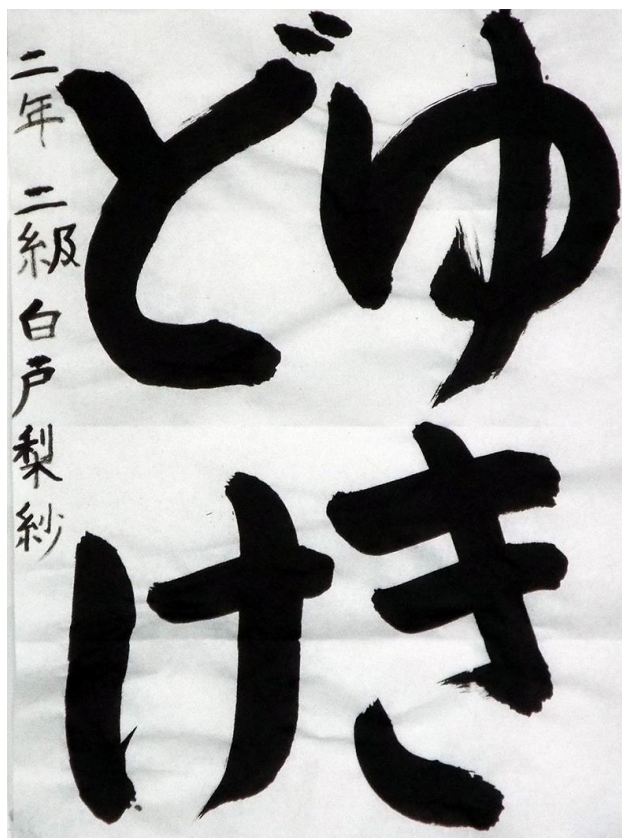 ゆき
どけ
二年 二級 白戸梨紗